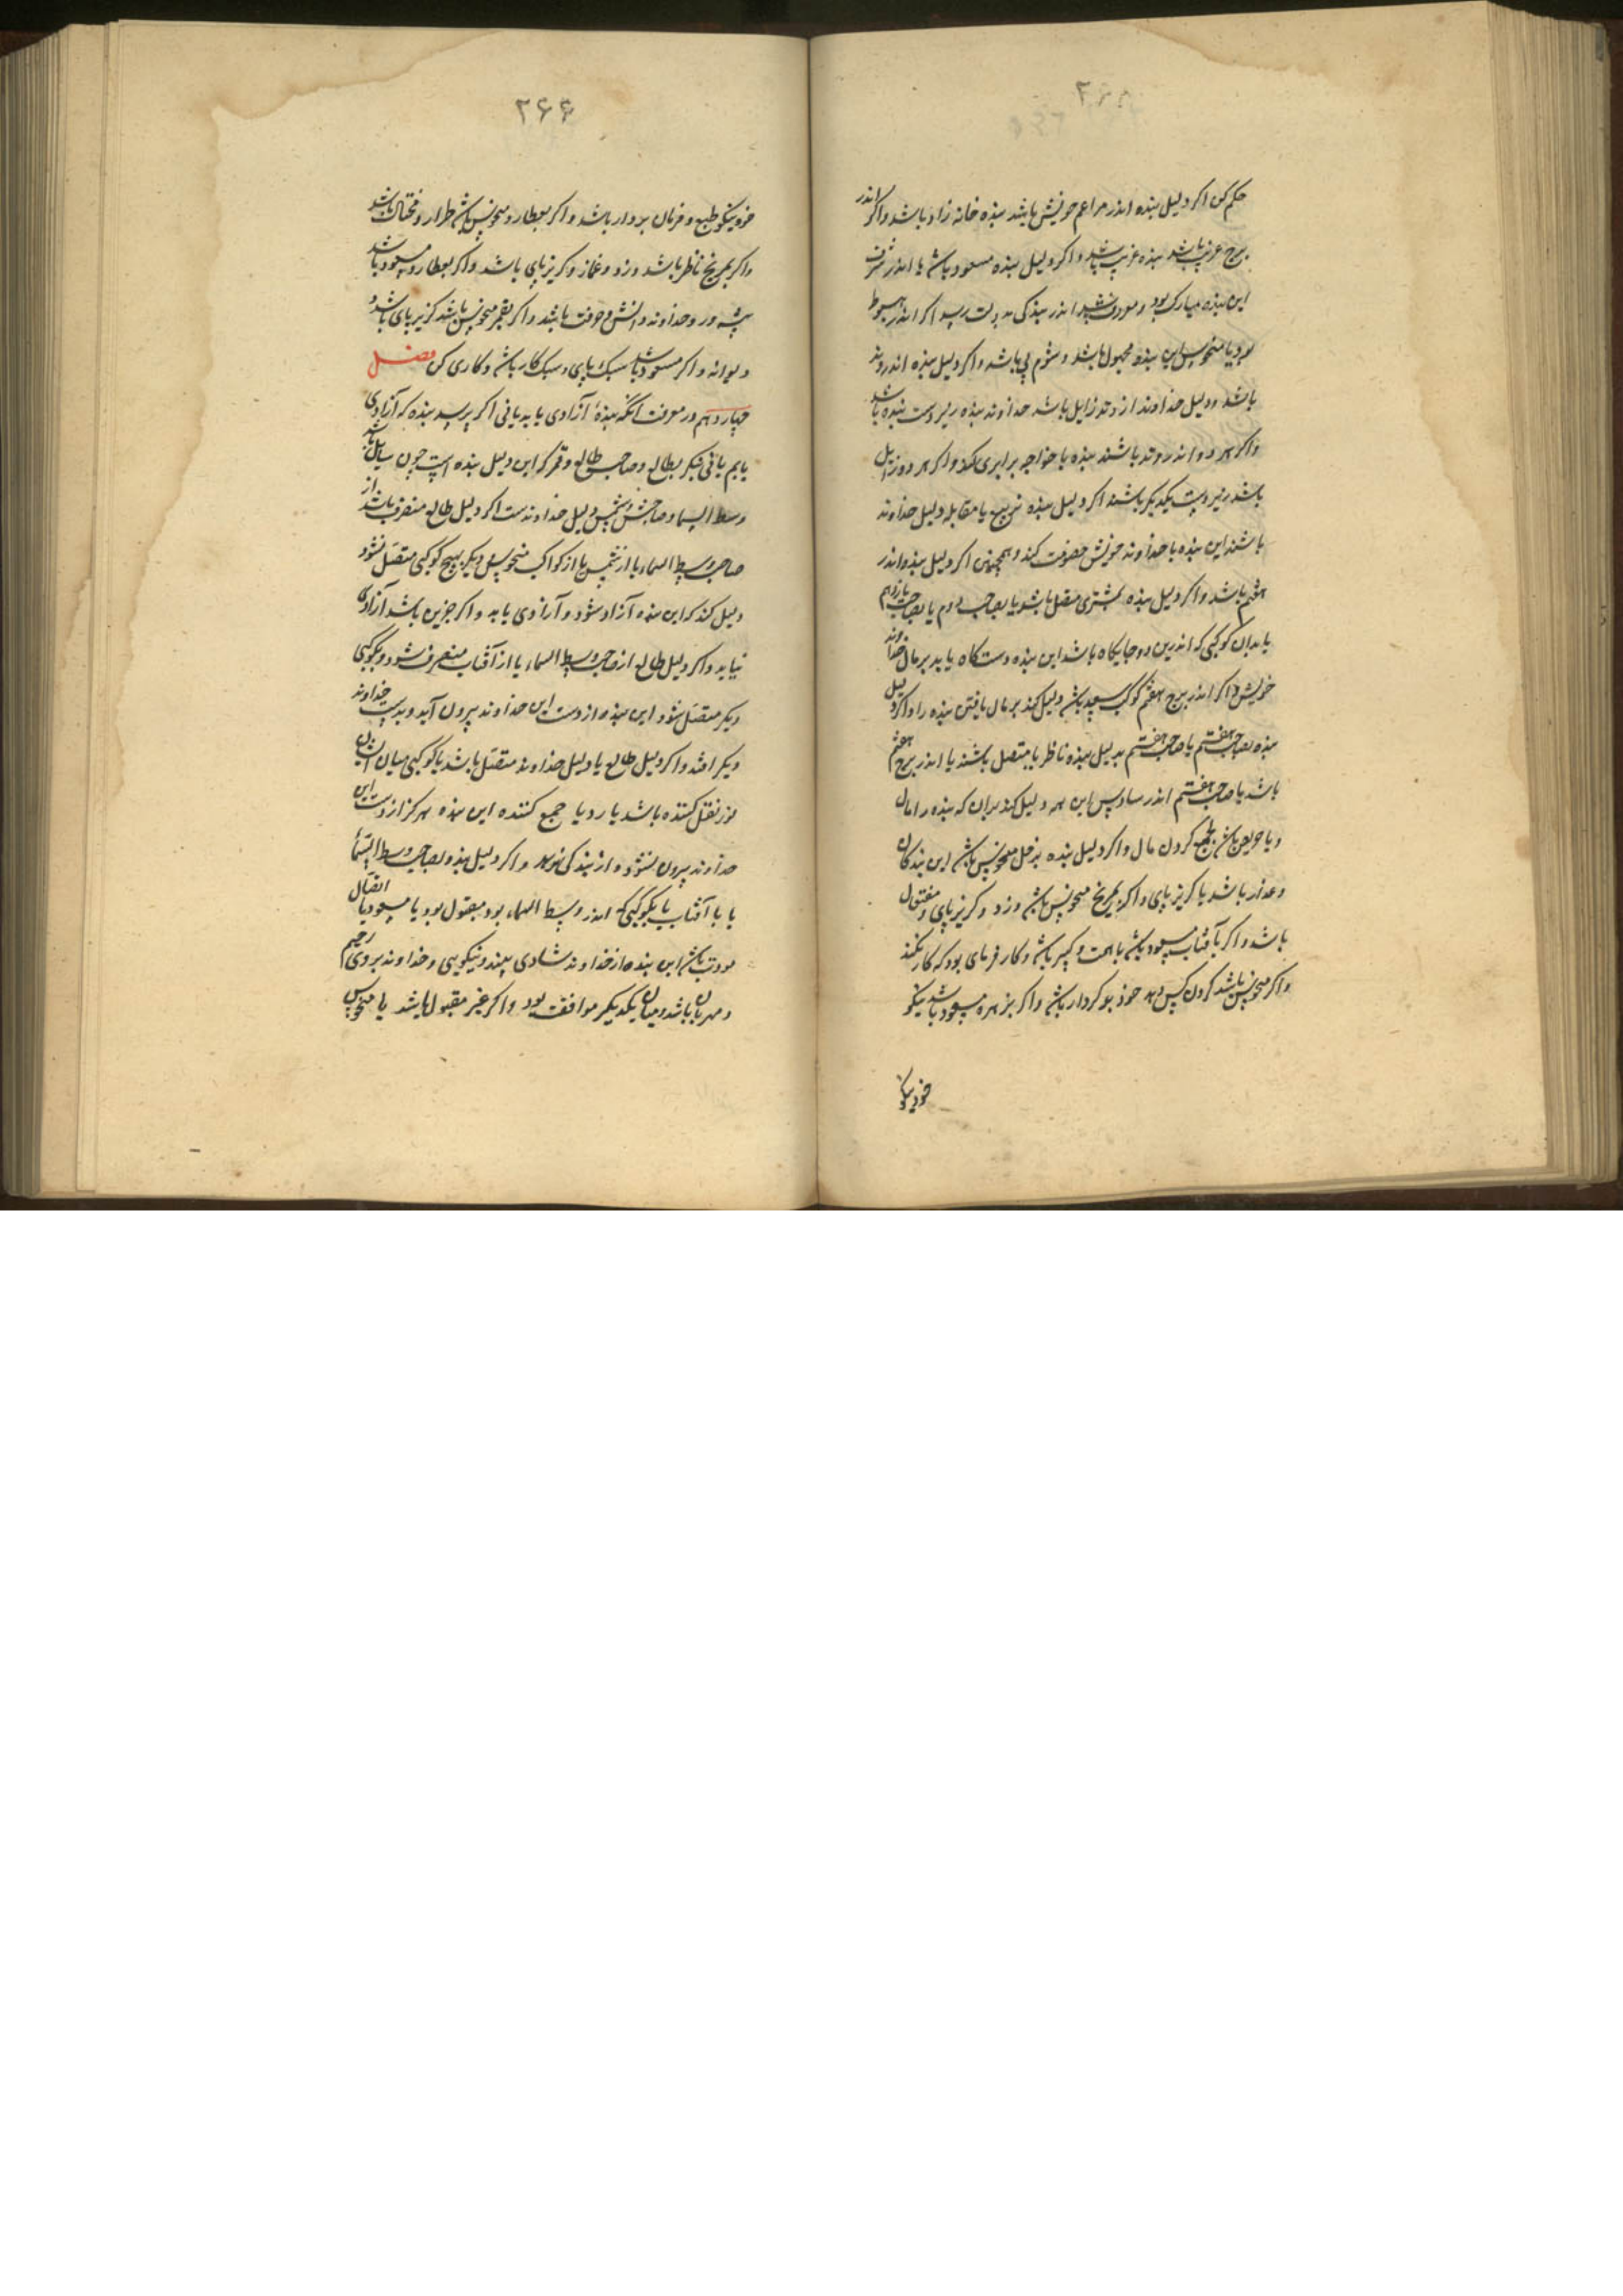 حکم کن اکر دلیل بنده اندر مراغم خویش باشد بنده خانه زاد باشد واکر اندر
برج غریب باشد بنده غریب باشد واکر دلیل بنده مسعود باشد یا اندر شرف
این بنده مبارک بود و اندر بندکی بدولت رسد اکر اندر هبوط
بود یا منحوس این بنده مجهول باشد و شوم پی باشد واکر دلیل بنده اندر وتد
باشد ودلیل خداوند از وتد زایل باشد خداوند بنده زیردست بنده باشد
واکر هر دو اندر وتد باشند بنده با خواجه برابری کند واکر هر دو زایل
باشند زیردست یکدیکر باشند اکر دلیل بنده تربیع یا مقابله دلیل خداوند
باشد این بنده با خداوند خویش خصومت کند و همچنین اکر دلیل بنده اندر
هفتم باشد واکر دلیل بنده بمشتری متصل باشد یا بصاحب دوم یا بصاحب یازدهم
یا بدان کوکبی که اندرین دو جایکاه باشد این بنده دستکاه یابد بر مال خداوند
خویش واکر اندر برج هفتم کوکب سعد باشد دلیل کند بر مال یافتن بنده را واکر دلیل
بنده بصاحب هفتم یا صاحب هفتم بدلیل بنده ناظر یا متصل باشند یا اندر برج هفتم
باشد یا صاحب هفتم اندر سادس این همه دلیل کند بران که بنده را مال
و یا حریص باشد بجمع کردن مال واکر دلیل بنده بزحل منحوس باشد این بندکان
وغدار باشد یا کریزپای واکر بمریخ منحوس باشد دزد وکریزپای و مفتول
باشد واکر بآفتاب مسعود باشد باهمت و کبیر باشد وکار فرمای بود که کار نکند
واکر منحوس باشد کردن کس ندهد خود بدکردار باشد واکر بزهره مسعود باشد نیکو
خو ونیکو
۲۶۶
خو ونیکو طبع و فرمان بردار باشد واکر بعطارد منحوس باشد طرار و محتال باشد
واکر بمریخ ناظر باشد دزد و غماز وکریزپای باشد واکر بعطارد مسعود باشد
پیشه ور وخداوند دانش و حرفت باشد واکر بقمر منحوس باشد کریزپای باشد و
دیوانه واکر مسعود باشد سبک پای و سبک کار باشد وکاری کن فصل
چهاردهم در معرفت آنکه بندهٔ آزادی یابد یا نی اکر پرسد بنده که آزادی
یابم یا نی بنکر بطالع و صاحب طالع وقمر که این دلیل بنده است چون سایل باشد
وسط السماء وصاحبش وشمس دلیل خداوندست اکر دلیل طالع منصرف باشد از
صاحب وسط السماء یا از شمس یا از کواکب منحوس و دیکر بهیچ کوکبی متصل نشود
دلیل کند که این بنده آزاد شود وآزادی یابد واکر جزین باشد آزادی
نیابد واکر دلیل طالع از صاحب وسط السماء یا از آفتاب منصرف شود وبکوکبی
دیکر متصل شود این بنده از دست این خداوند بیرون آید وبدست خداوند
دیکر افتد واکر دلیل طالع یا دلیل خداوند متصل باشد یا کوکبی میان ایشان
نور نقل کننده باشد یا رد یا جمع کننده این بنده هرکز از دست این
خداوند بیرون نشود و از بندکی نرهد واکر دلیل بنده بصاحب وسط السماء
یا با آفتاب یا بکوکبی که اندر وسط السماء بود مقبول بود یا مسعود یا اتصال
مودت باشد این بنده از خداوند شادی بیند ونیکویی وخداوند بر وی رحیم
ومهربان باشد ومیان یکدیکر موافقت بود واکر غیر مقبول باشد یا منحوس